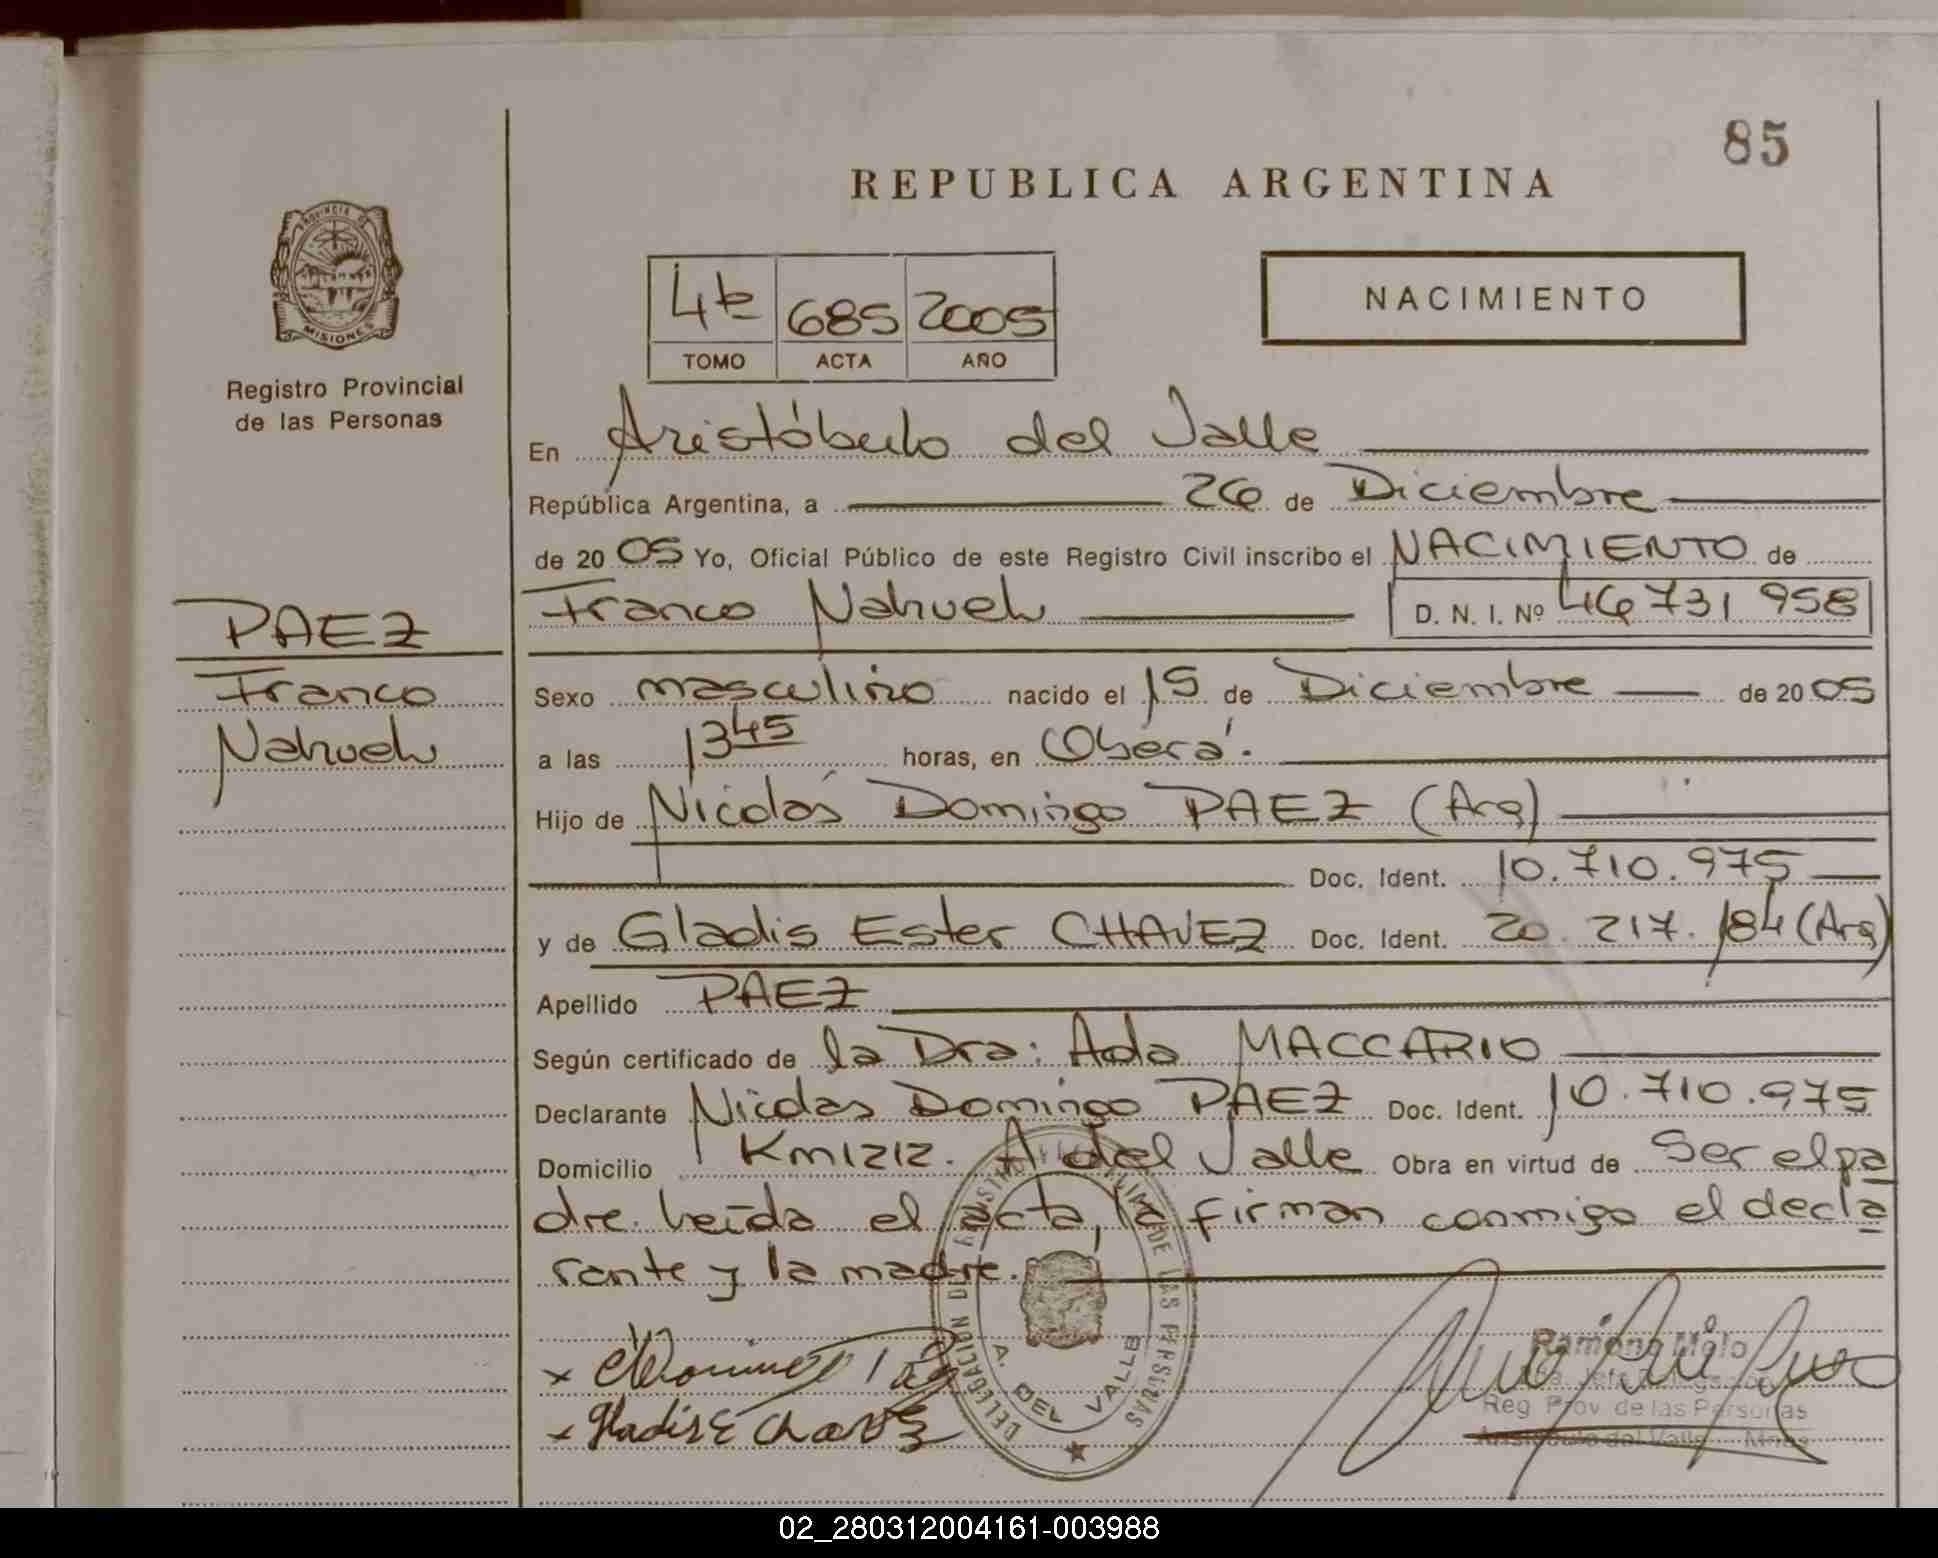 85
REPUBLICA ARGENTINA
PROVINCIA DE
MISIONES
Registro Provincial
de las Personas
4to 685 2005
TOMO ACTA AÑO
NACIMIENTO
En Aristóbulo del Valle
República Argentina, a 26 de Diciembre
de 2005 Yo, Oficial Público de este Registro Civil inscribo el NACIMIENTO de
Franco Nahuel D. N. I. Nº 46731958
PAEZ
Franco
Nahuel
Sexo masculino nacido el 15 de Diciembre de 2005
a las 13 45 horas, en Oberá.
Hijo de Nicolás Domingo PAEZ (Arg)
Doc. Ident. 10.710.975
y de Gladis Ester CHAVEZ Doc. Ident. 20.217.184 (Arg)
Apellido PAEZ
Según certificado de la Dra: Ada MACCARIO
Declarante Nicolas Domingo PAEZ Doc. Ident. 10.710.975
Domicilio Km1212. A. del Valle Obra en virtud de Ser el pa
dre. Leída el acta, la firman conmigo el decla
rante y la madre.
DELEGACION DE LAS PERSONAS
A. DEL VALLE
Gladis E Chavez
Ramona Melo
Reg Prov. de las Personas
Aristóbulo del Valle - Mnes
02_280312004161-003988